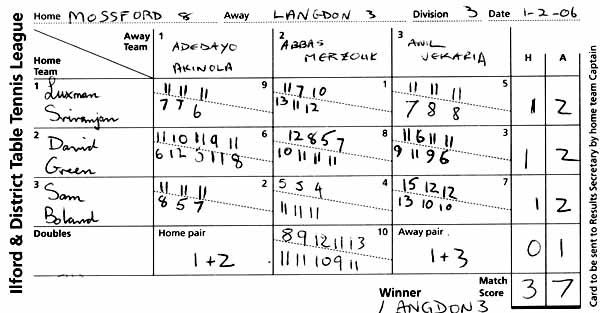 Ilford & District Table Tennis League
Home MOSSFORD 8 Away LANGDON 3 Division 3 Date 1-2-06
Away Team 1 ADEDAYO AKINOLA 2 ABBAS MERZOUK 3 ANIL VEKARIA H A
Home Team
1 Luxman Srivanjan 9 11 11 11 1 11 7 10 5 11 11 11 1 2
7 7 6 13 11 12 7 8 8
2 David Green 6 11 10 11 9 11 8 12 8 5 7 3 11 6 11 11 1 2
6 12 5 11 8 10 11 11 11 9 11 9 6
3 Sam Boland 2 11 11 11 4 5 5 4 7 15 12 12 1 2
8 5 7 11 11 11 13 10 10
Doubles Home pair 1+2 10 8 9 12 11 13 Away pair 1+3 0 1
11 11 10 9 11
Winner LANGDON 3 Match Score 3 7
Card to be sent to Results Secretary by home team Captain